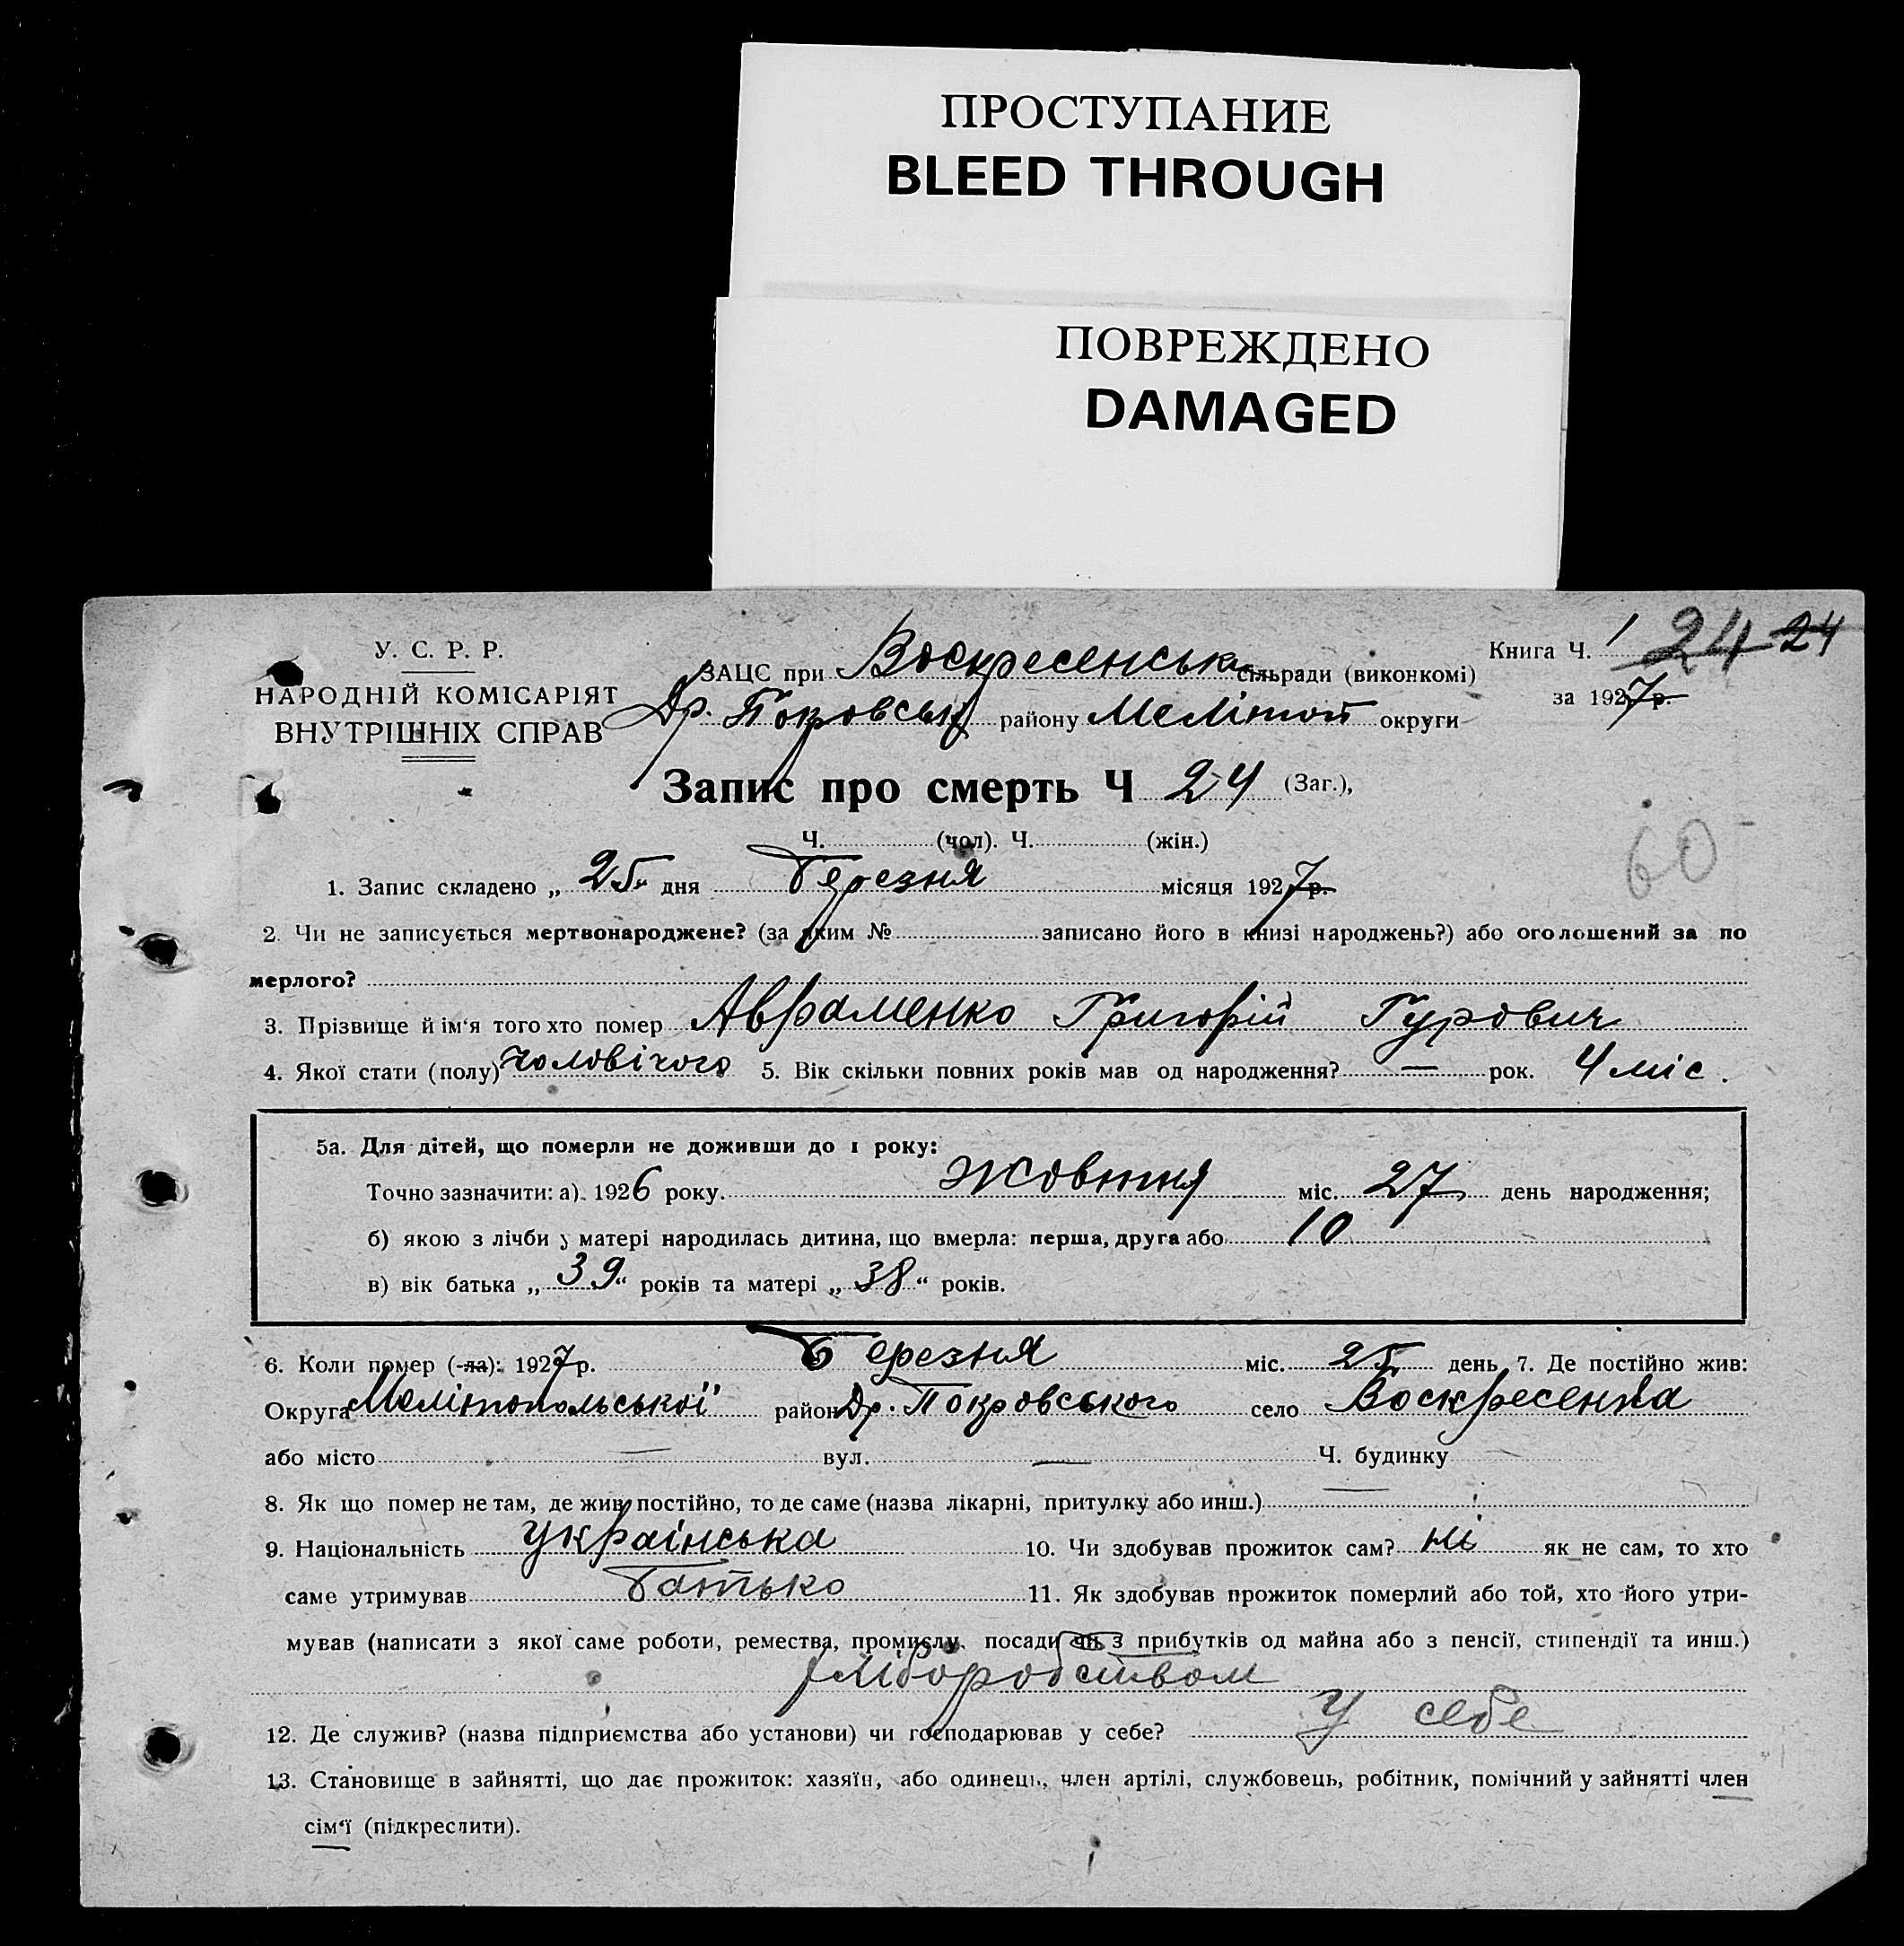 ПРОСТУПАНИЕ
BLEED THROUGH
ПОВРЕЖДЕНО
DAMAGED
У. С. Р. Р.
НАРОДНІЙ КОМІСАРІЯТ
ВНУТРІШНІХ СПРАВ
ЗАЦС при Воскресенськ сільради (виконкомі)
Др. Покровськ району Мелітоп округи
Книга Ч. 1 24 24
за 1927 р.
Запис про смерть Ч 24 (Заг.),
Ч. (чол). Ч. (жін.)
60
1. Запис складено „ 25 " дня Березня місяця 1927 р.
2. Чи не записується мертвонароджене? (за яким № записано його в книзі народжень?) або оголошений за по
мерлого?
3. Прізвище й ім'я того хто помер Авраменко Григорій Гурович
4. Якої стати (полу) чоловічого 5. Вік скільки повних років мав од народження? — рок. 4 міс.
5а. Для дітей, що померли не доживши до 1 року:
Точно зазначити: а). 1926 року. Жовтня міс. 27 день народження;
б) якою з лічби у матері народилась дитина, що вмерла: перша, друга або 10
в) вік батька „ 39 " років та матері „ 38 " років.
6. Коли помер (-ла): 1927 р. Березня міс. 25 день 7. Де постійно жив:
Округа Мелітопольської район Др. Покровського село Воскресенка
або місто — вул. — Ч. будинку —
8. Як що помер не там, де жив постійно, то де саме (назва лікарні, притулку або инш.)
9. Національність українська 10. Чи здобував прожиток сам? ні як не сам, то хто
саме утримував батько 11. Як здобував прожиток померлий або той, хто його утри-
мував (написати з якої саме роботи, ремества, промислу, посади чи з прибутків од майна або з пенсії, стипендії та инш.)
хліборобством
12. Де служив? (назва підприємства або установи) чи господарював у себе? У себе
13. Становище в зайнятті, що дає прожиток: хазяїн, або одинець, член артілі, службовець, робітник, помічний у зайнятті член
сім'ї (підкреслити).